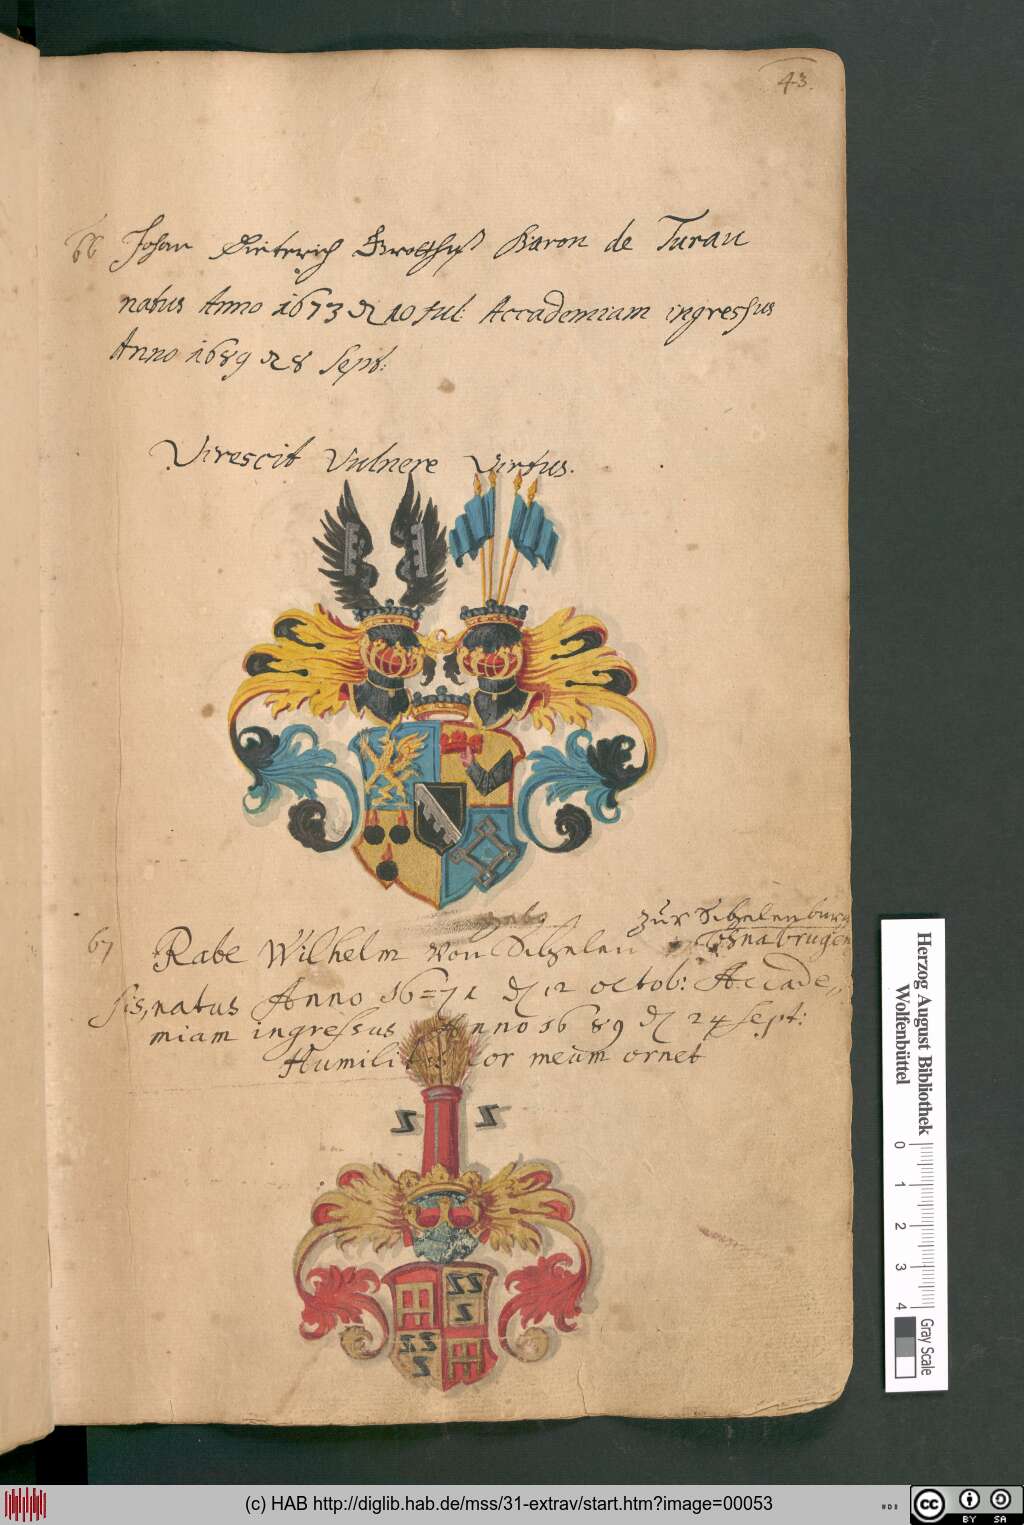 43.
66 Johan Dieterich Grotthuß Baron de Turau
natus Anno 1673 10 Jul: Accademiam ingressus
Anno 1689 8 Sept:
Virescit Vulnere Virtus.
zur Schelenburg
67 Rabe Wilhelm von Schelen Osnabrugen
sis, natus Anno 16=71 12 octob: Accade,,
miam ingressus Anno 1689 24 Sept:
Humilitas Cor meum ornet
Herzog August Bibliothek
Wolfenbüttel
0 1 2 3 4
Gray Scale
(c) HAB http://diglib.hab.de/mss/31-extrav/start.htm?image=00053
cc BY SA